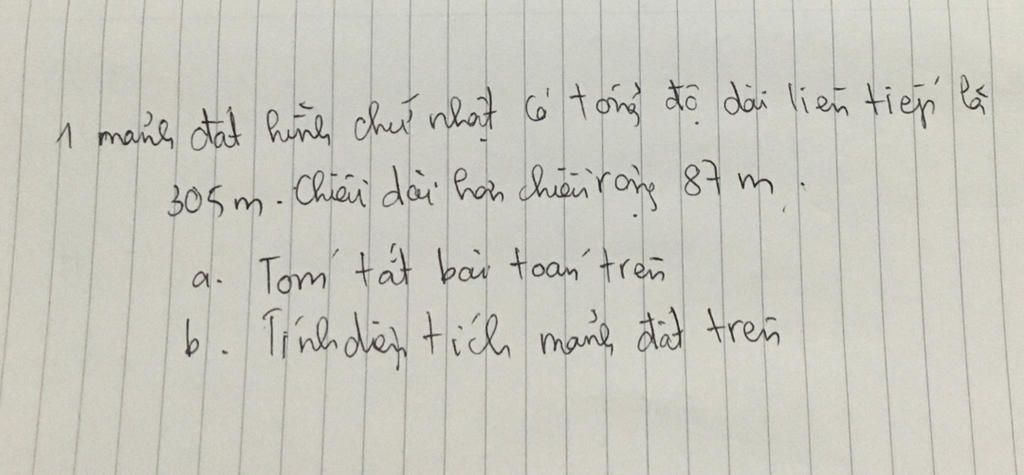 1 mảnh đất hình chữ nhật có tổng độ dài liên tiếp là
305m. Chiều dài hơn chiều rộng 87 m.
a. Tóm tắt bài toán trên
b. Tính diện tích mảnh đất trên